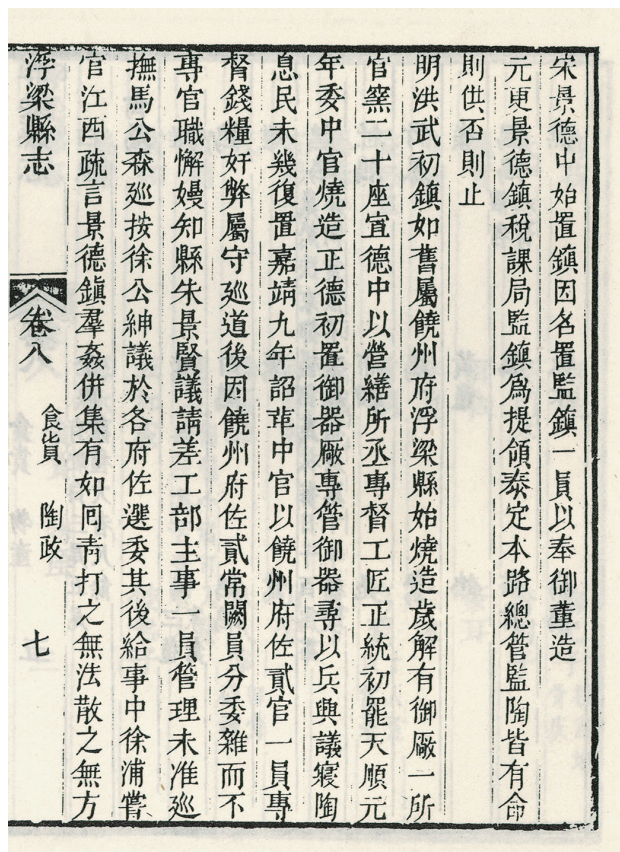 宋景德中始置鎮因名置監鎮一員以奉御董造
元更景德鎮稅課局監鎮爲提領泰定本路總管監陶皆有命
則供否則止
明洪武初鎮如舊屬饒州府浮梁縣始燒造歲解有御厰一所
官窰二十座宣德中以營繕所丞專督工匠正統初罷天順元
年委中官燒造正德初置御器厰專管御器尋以兵興議寢陶
息民未幾復置嘉靖九年詔革中官以饒州府佐貳官一員專
督錢糧奸弊屬守巡道後因饒州府佐貳常闕員分委雜而不
專官職懈嫚知縣朱景賢議請差工部主事一員管理未准巡
撫馬公森巡按徐公紳議於各府佐選委其後給事中徐浦嘗
官江西疏言景德鎮羣姦併集有如囘青打之無法散之無方
浮梁縣志
卷八
食貨
陶政
七